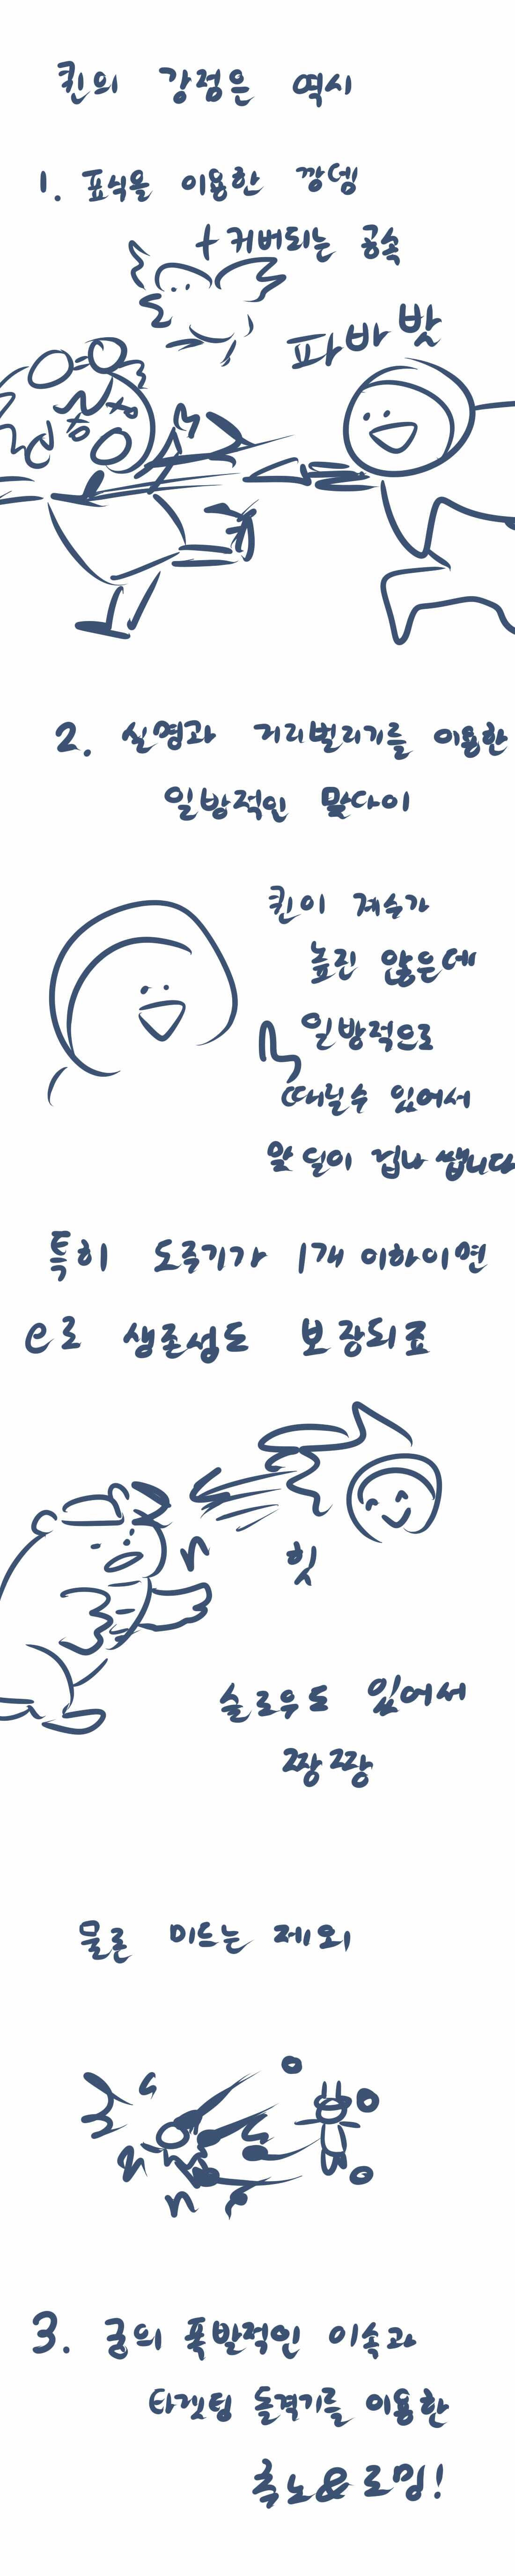 퀸의 강점은 역시
1. 표식을 이용한 깡뎀
+ 커버되는 공속
파바밧
2. 실명과 거리벌리기를 이용한
일방적인 맞다이
퀸이 계수가
높진 않은데
일방적으로
때릴수 있어서
맞딜이 겁나 쌥니다
특히 도주기가 1개 이하이면
e로 생존성도 보장되죠
힛
슬로우도 있어서
짱짱
물론 미드는 제외
3. 궁의 폭발적인 이속과
타겟팅 돌격기를 이용한
흑노&로밍!